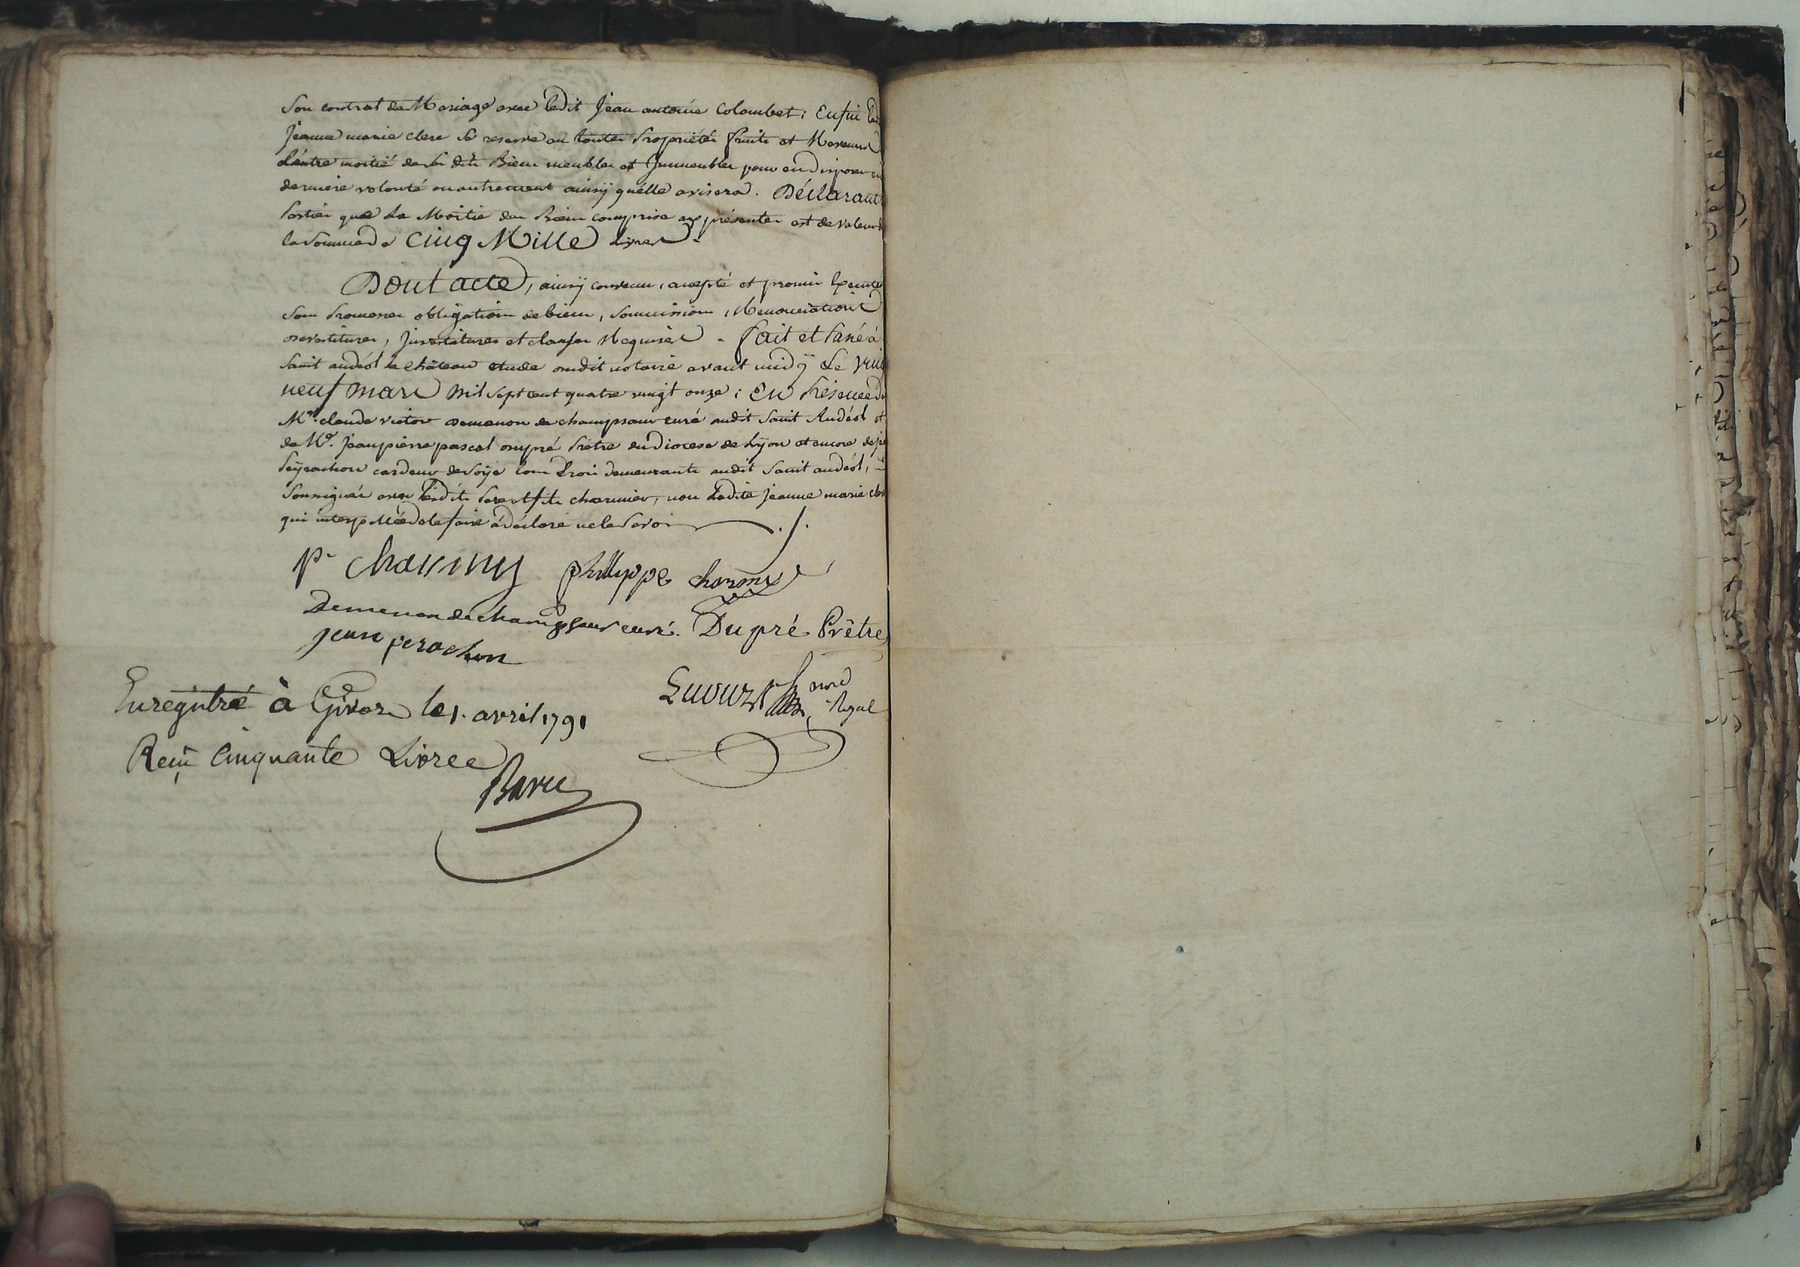 Son contrat de Mariage avec ledit Jean antoine Colombet; Enfin
jeanne marie clerc se reserve en toutes Propriétés fruits et Revenus
L'autre moitié de ses dits Biens meubles et Immeubles pour en disposer en
derniere volonté ou autrement ainsy qu'elle avisera. Déclarant
Parties que la Moitie des Biens comprise aux présentes est de valeur
la Somme de Cinq Mille Livres.
Dont acte, ainsy convenu, accepté et promis
Sous Promesses obligation de biens, Soumissions, Renonciations
, et clauses Requises. fait et Passé à
Saint andéol le château etude dudit notaire avant midÿ Le vingt
neuf mars mil sept cent quatre vingt onze; En Présence de
Mre. claude victor demenon de champsaur curé audit Saint Andéol et
de Mre. jean pierre pascal Prêtre du Diocese de Lÿon et encore de
cardeur de Soÿe tous Trois demeurants audit Saint andéol,
Soussignés avec lesdits Pere et fils charmier, non Ladite jeanne marie
qui interpellée de le faire a déclaré ne le Savoir
pr charmy philippe
Demenon de champsaur curé. Dupré Prêtre
jean perachon
Royal
Enregistré à Givors le 1. avril 1791
Reçu Cinquante Livres